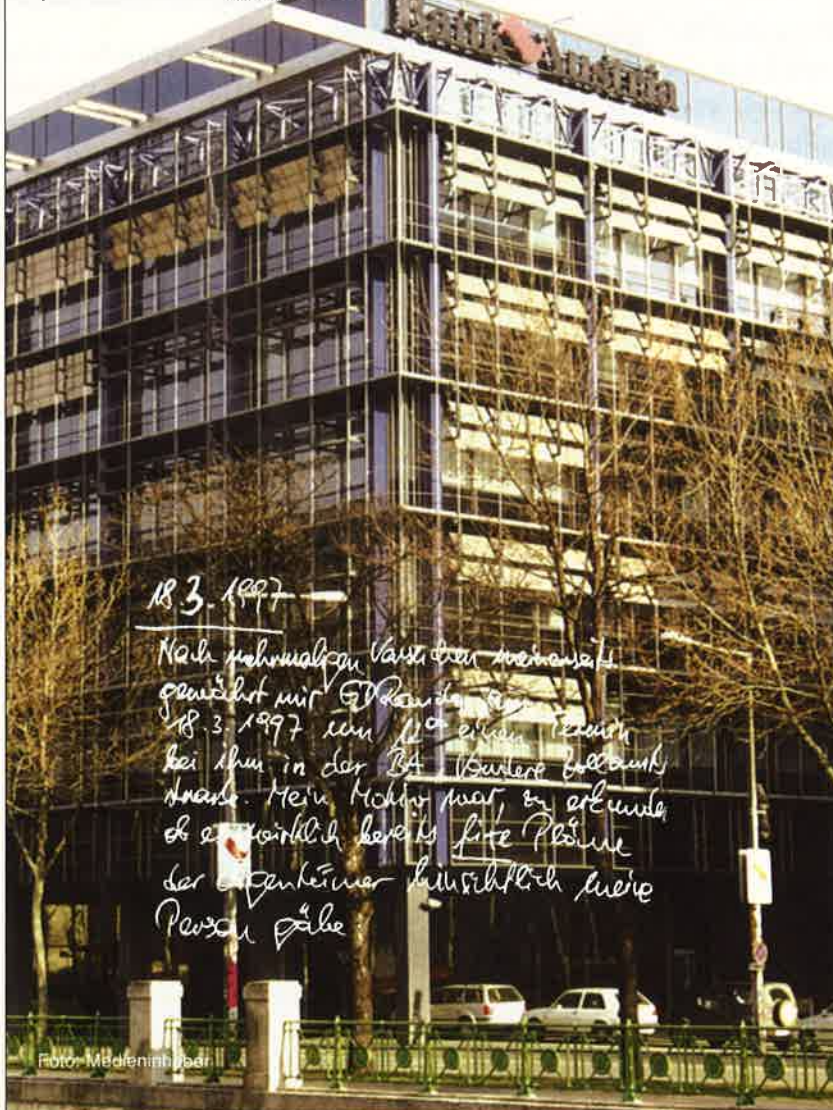 Bank Austria
18.3.1997
Nach mehrmaligen Versuchen meinerseits
gewährt mir GD Randa am
18.3.1997 um 11⁰⁰ einen Termin
bei ihm in der BA Vordere Zollamts
strasse. Mein Motiv war, zu erkunden
ob es wirklich bereits fixe Pläne
der Eigentümer hinsichtlich meine
Person gäbe.
Foto: Medieninhaber